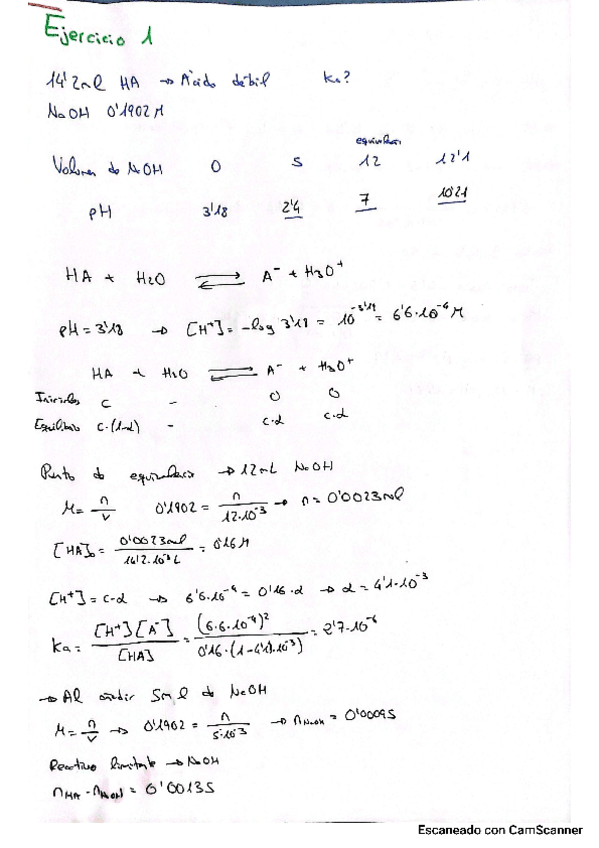 Ejercicio 1
14'2ml HA → Ácido débil Ka?
NaOH 0'1902 M
equivalencia
Volumen de NaOH 0 5 12 12'1
pH 3'18 2'4 7 10'21
HA + H2O ⇌ A⁻ + H3O⁺
pH = 3'18 → [H⁺] = -log 3'18 = 10^-3'18 = 6'6·10⁻⁴ M
HA + H2O ⇌ A⁻ + H3O⁺
Iniciales C - 0 0
Equilibrio C·(1-α) - C·α C·α
Punto de equivalencia → 12mL NaOH
M = n/V 0'1902 = n/12·10⁻³ → n = 0'0023mol
[HA]₀ = 0'0023mol/14'2·10⁻³L = 0'16 M
[H⁺] = C·α → 6'6·10⁻⁴ = 0'16·α → α = 4'1·10⁻³
Ka = [H⁺][A⁻]/[HA] = (6'6·10⁻⁴)²/0'16·(1-4'1·10⁻³) = 2'7·10⁻⁶
→ Al añadir 5ml de NaOH
M = n/V → 0'1902 = n/5·10⁻³ → nNaOH = 0'00095
Reactivo limitante → NaOH
nHA - nNaOH = 0'00135
Escaneado con CamScanner